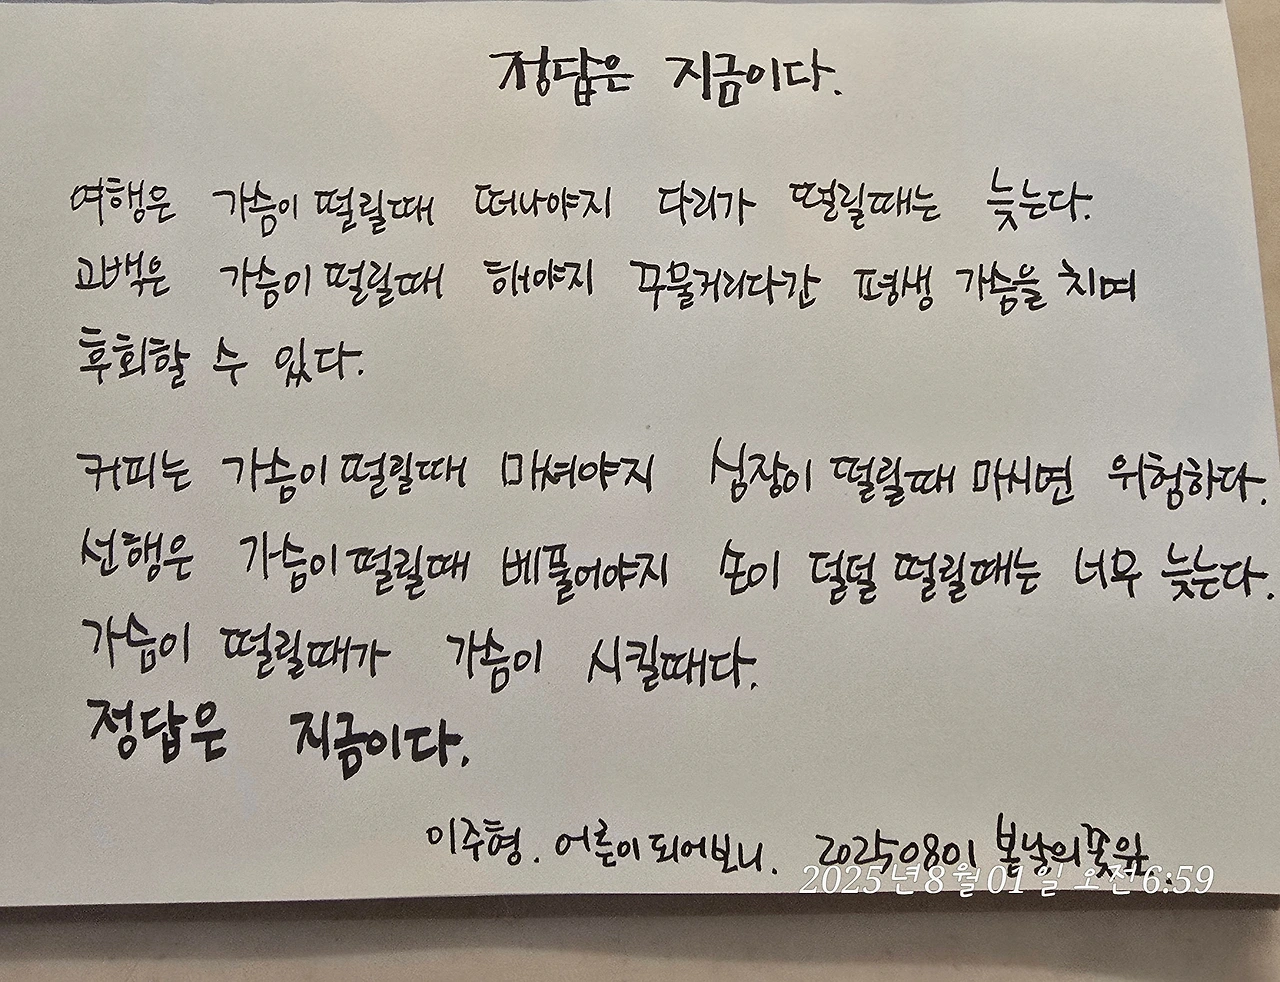 정답은 지금이다.
여행은 가슴이 떨릴때 떠나야지 다리가 떨릴때는 늦는다.
고백은 가슴이 떨릴때 해야지 꾸물거리다간 평생 가슴을 치며
후회할 수 있다.
커피는 가슴이 떨릴때 마셔야지 심장이 떨릴때 마시면 위험하다.
선행은 가슴이 떨릴때 베풀어야지 손이 덜덜 떨릴때는 너무 늦는다.
가슴이 떨릴때가 가슴이 시킬때다.
정답은 지금이다.
이주형. 어른이 되어보니. 20250801 봄날의꽃잎.
2025년8월01일 오전6:59